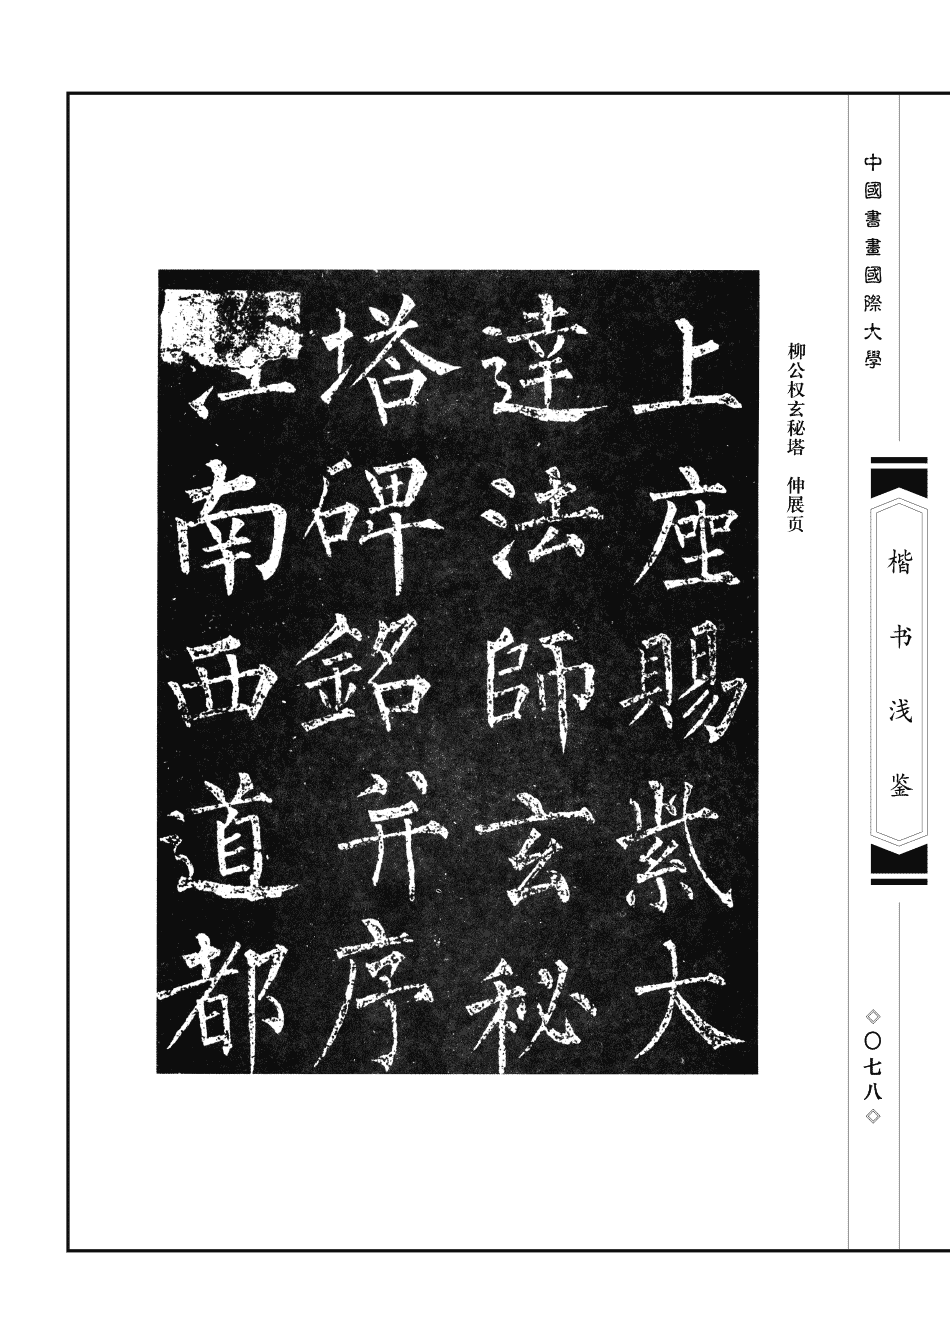 中國書畫國際大學
楷书浅鉴
〇七八
柳公权玄秘塔 伸展页
上座賜紫大
達法師玄秘
塔碑銘并序
江南西道都